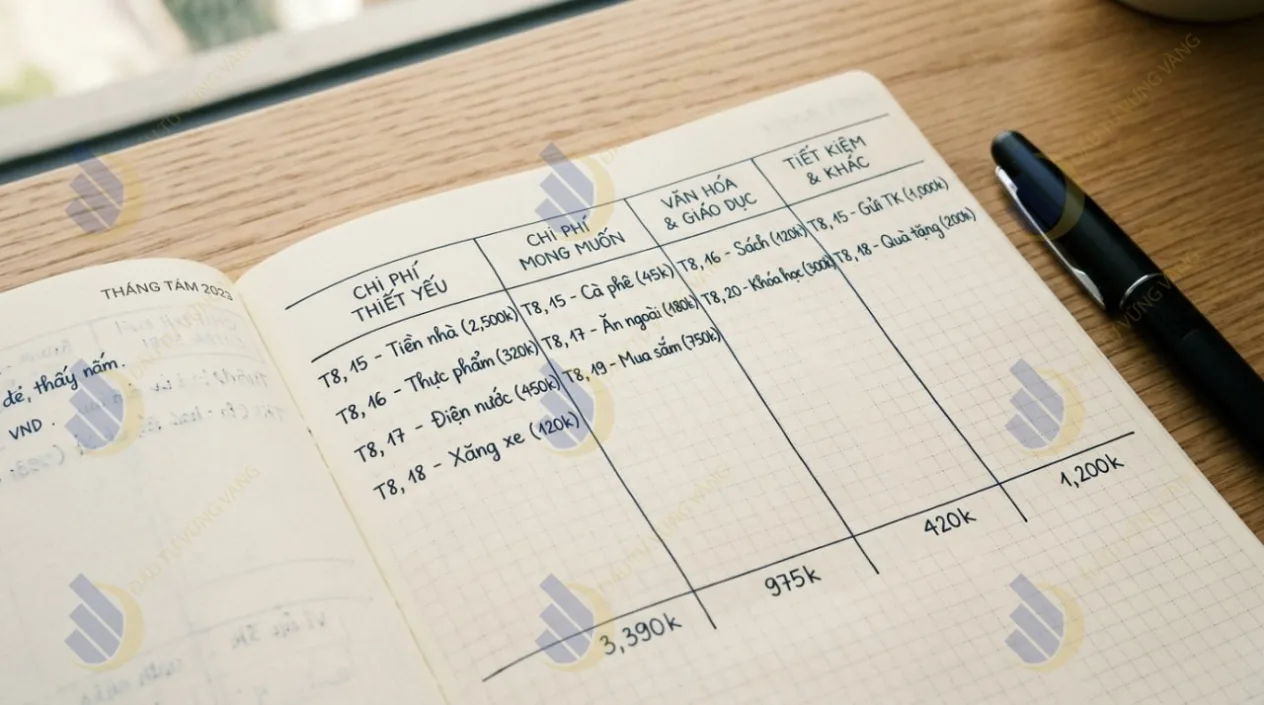 THÁNG TÁM 2023
đẻ, thấy nấm.
VND.
CHI PHÍ
THIẾT YẾU
T8, 15 - Tiền nhà (2,500k)
T8, 16 - Thực phẩm (320k)
T8, 17 - Điện nước (450k)
T8, 18 - Xăng xe (120k)
3,390k
CHI PHÍ
MONG MUỐN
T8, 15 - Cà phê (45k)
T8, 17 - Ăn ngoài (180k)
T8, 19 - Mua sắm (750k)
975k
VĂN HÓA
& GIÁO DỤC
T8, 16 - Sách (120k)
T8, 20 - Khóa học (300k)
420k
TIẾT KIỆM
& KHÁC
T8, 15 - Gửi TK (1,000k)
T8, 18 - Quà tặng (200k)
1,200k
ĐẦU TƯ VỮNG VÀNG